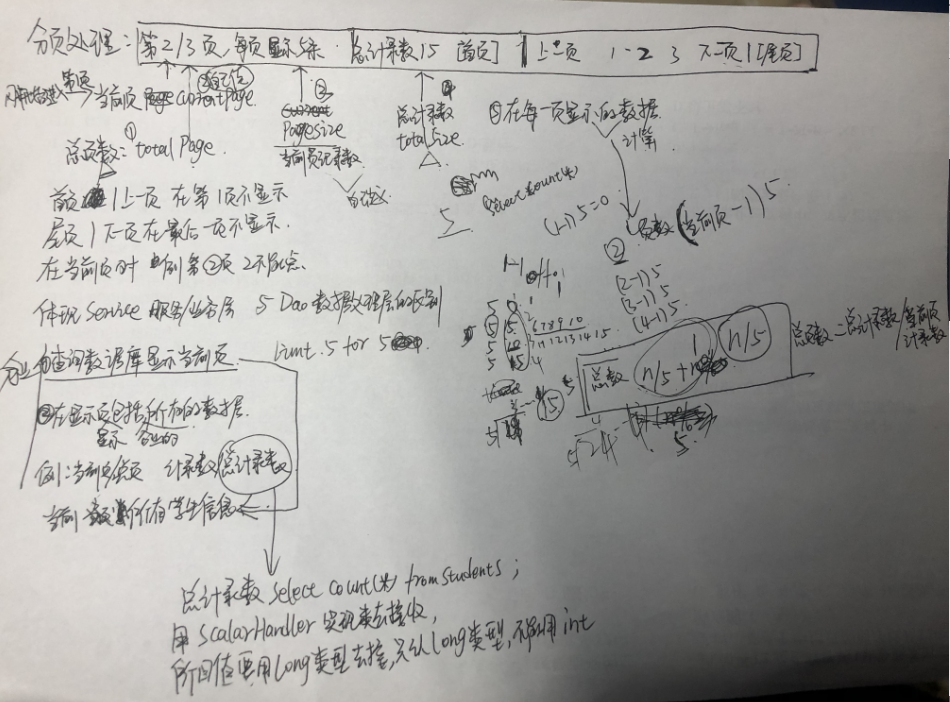 分页处理：第2/3页，每页显示5条 总计录数15 [首页] 上一页 1 2 3 下一页 | [尾页]
当前页 currentPage
② ③ ④
pagesize
当前页记录数
总计录数
totalSize
⑤在每一页显示的数据
计算
①
总页数：totalPage
自定义
首页 | 上一页 在第1页不显示
尾页 | 下一页在最后一页不显示
select count(*)
(1-1)5=0
② 页数(当前页-1)5
在当前页时 例第②页 2不能点
(2-1)5
(3-1)5
(4-1)5
体现Service服务/业务层 与Dao数据处理层的区别
6 7 8 9 10
11 12 13 14 15
Limit 5 for 5
查询数据库显示当前页
总数 n/5+1 n/5
总页数=总计录数/当前页计录数
在显示页包括所有的数据
显示
5 24
5
例：当前 页 计录数 总计录数
当前 所有学生信息
总计录数 select count(*) from students;
用 ScalarHandler 实现类去接收，
所回值要用long类型去接，只认long类型，不能用int